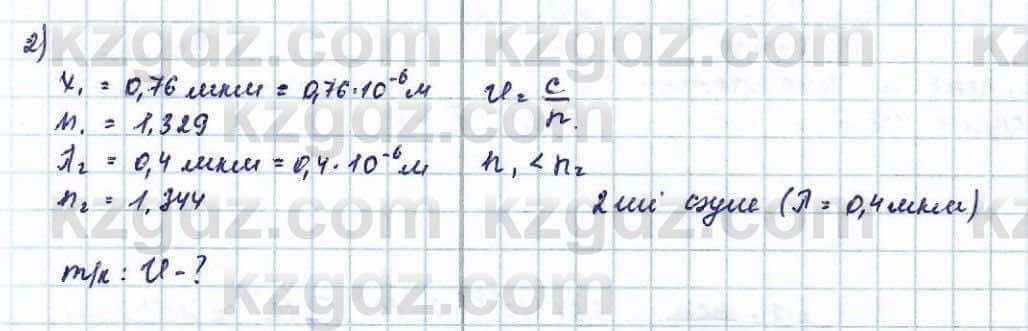 2)
λ₁ = 0,76 мкм = 0,76·10⁻⁶ м
n₁ = 1,329
λ₂ = 0,4 мкм = 0,4·10⁻⁶ м
n₂ = 1,344
т/к: υ - ?
υ = c/n.
n₁ < n₂
2 ші сәуле (λ = 0,4 мкм)
kzgdz.com kzgdz.com
kzgdz.com kzgdz.com
kzgdz.com kzgdz.com
kzgdz.com kzgdz.com